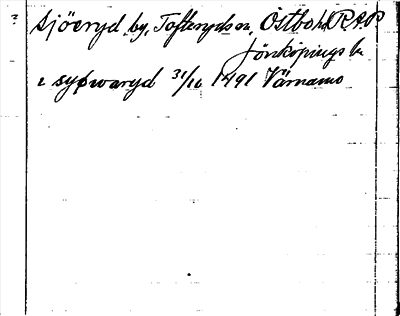 Sjöeryd by, Tofteryds sn, Östbo hd R.A.P
Jönköpings l.
i syøwaryd 31/10 1491 Värnamo